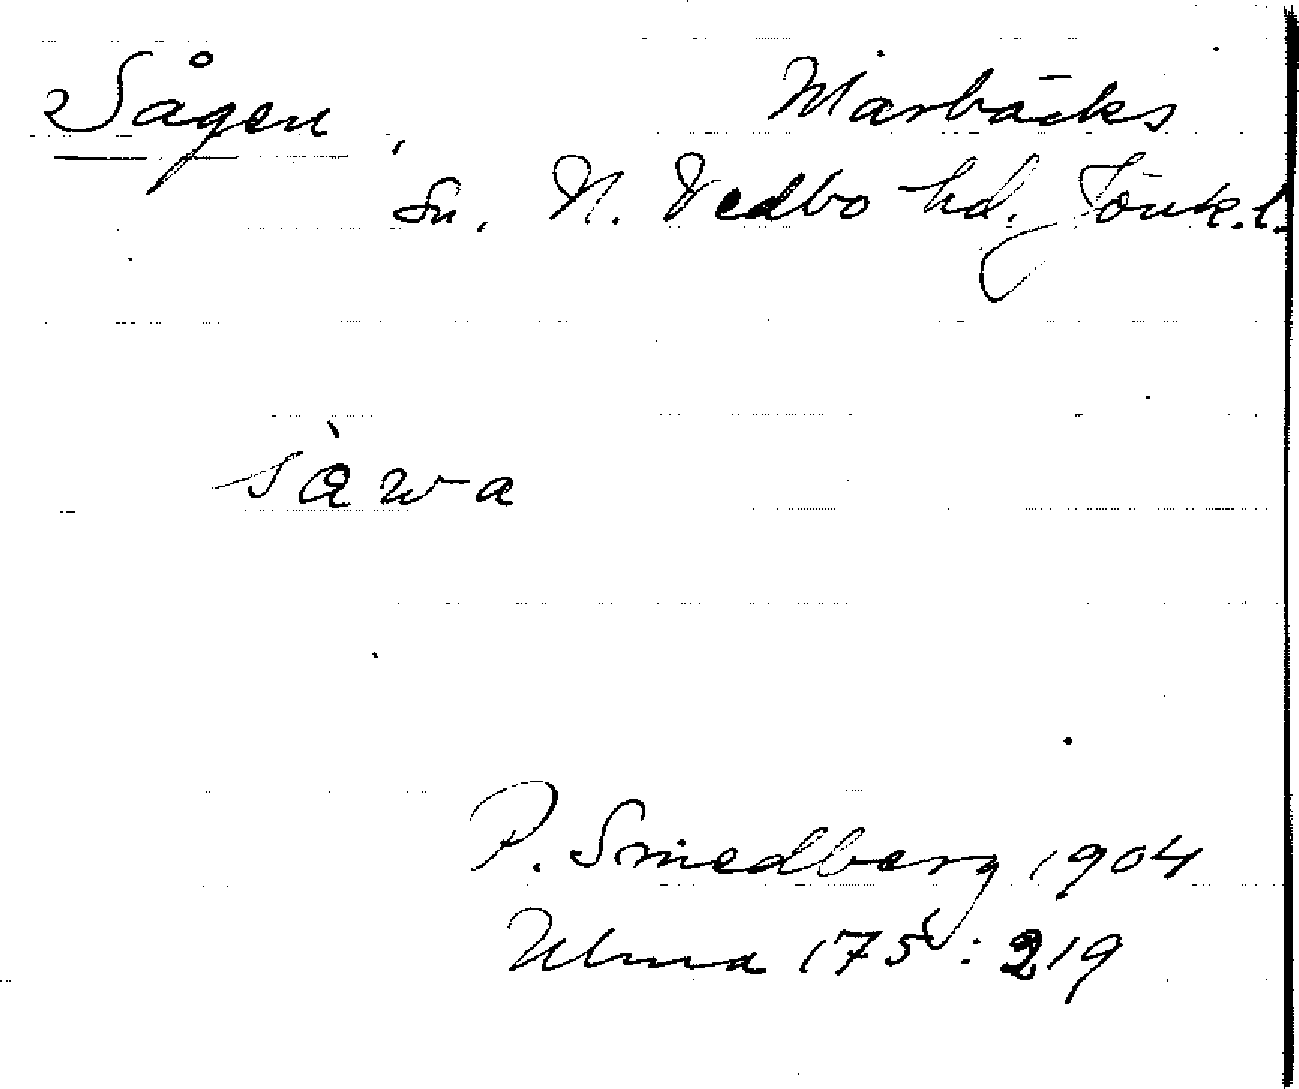 Sågen, Marbäcks
sn. N. Vedbo hd. Jönk. l.
sàwa
P. Smedberg 1904
Ulma 175: 219